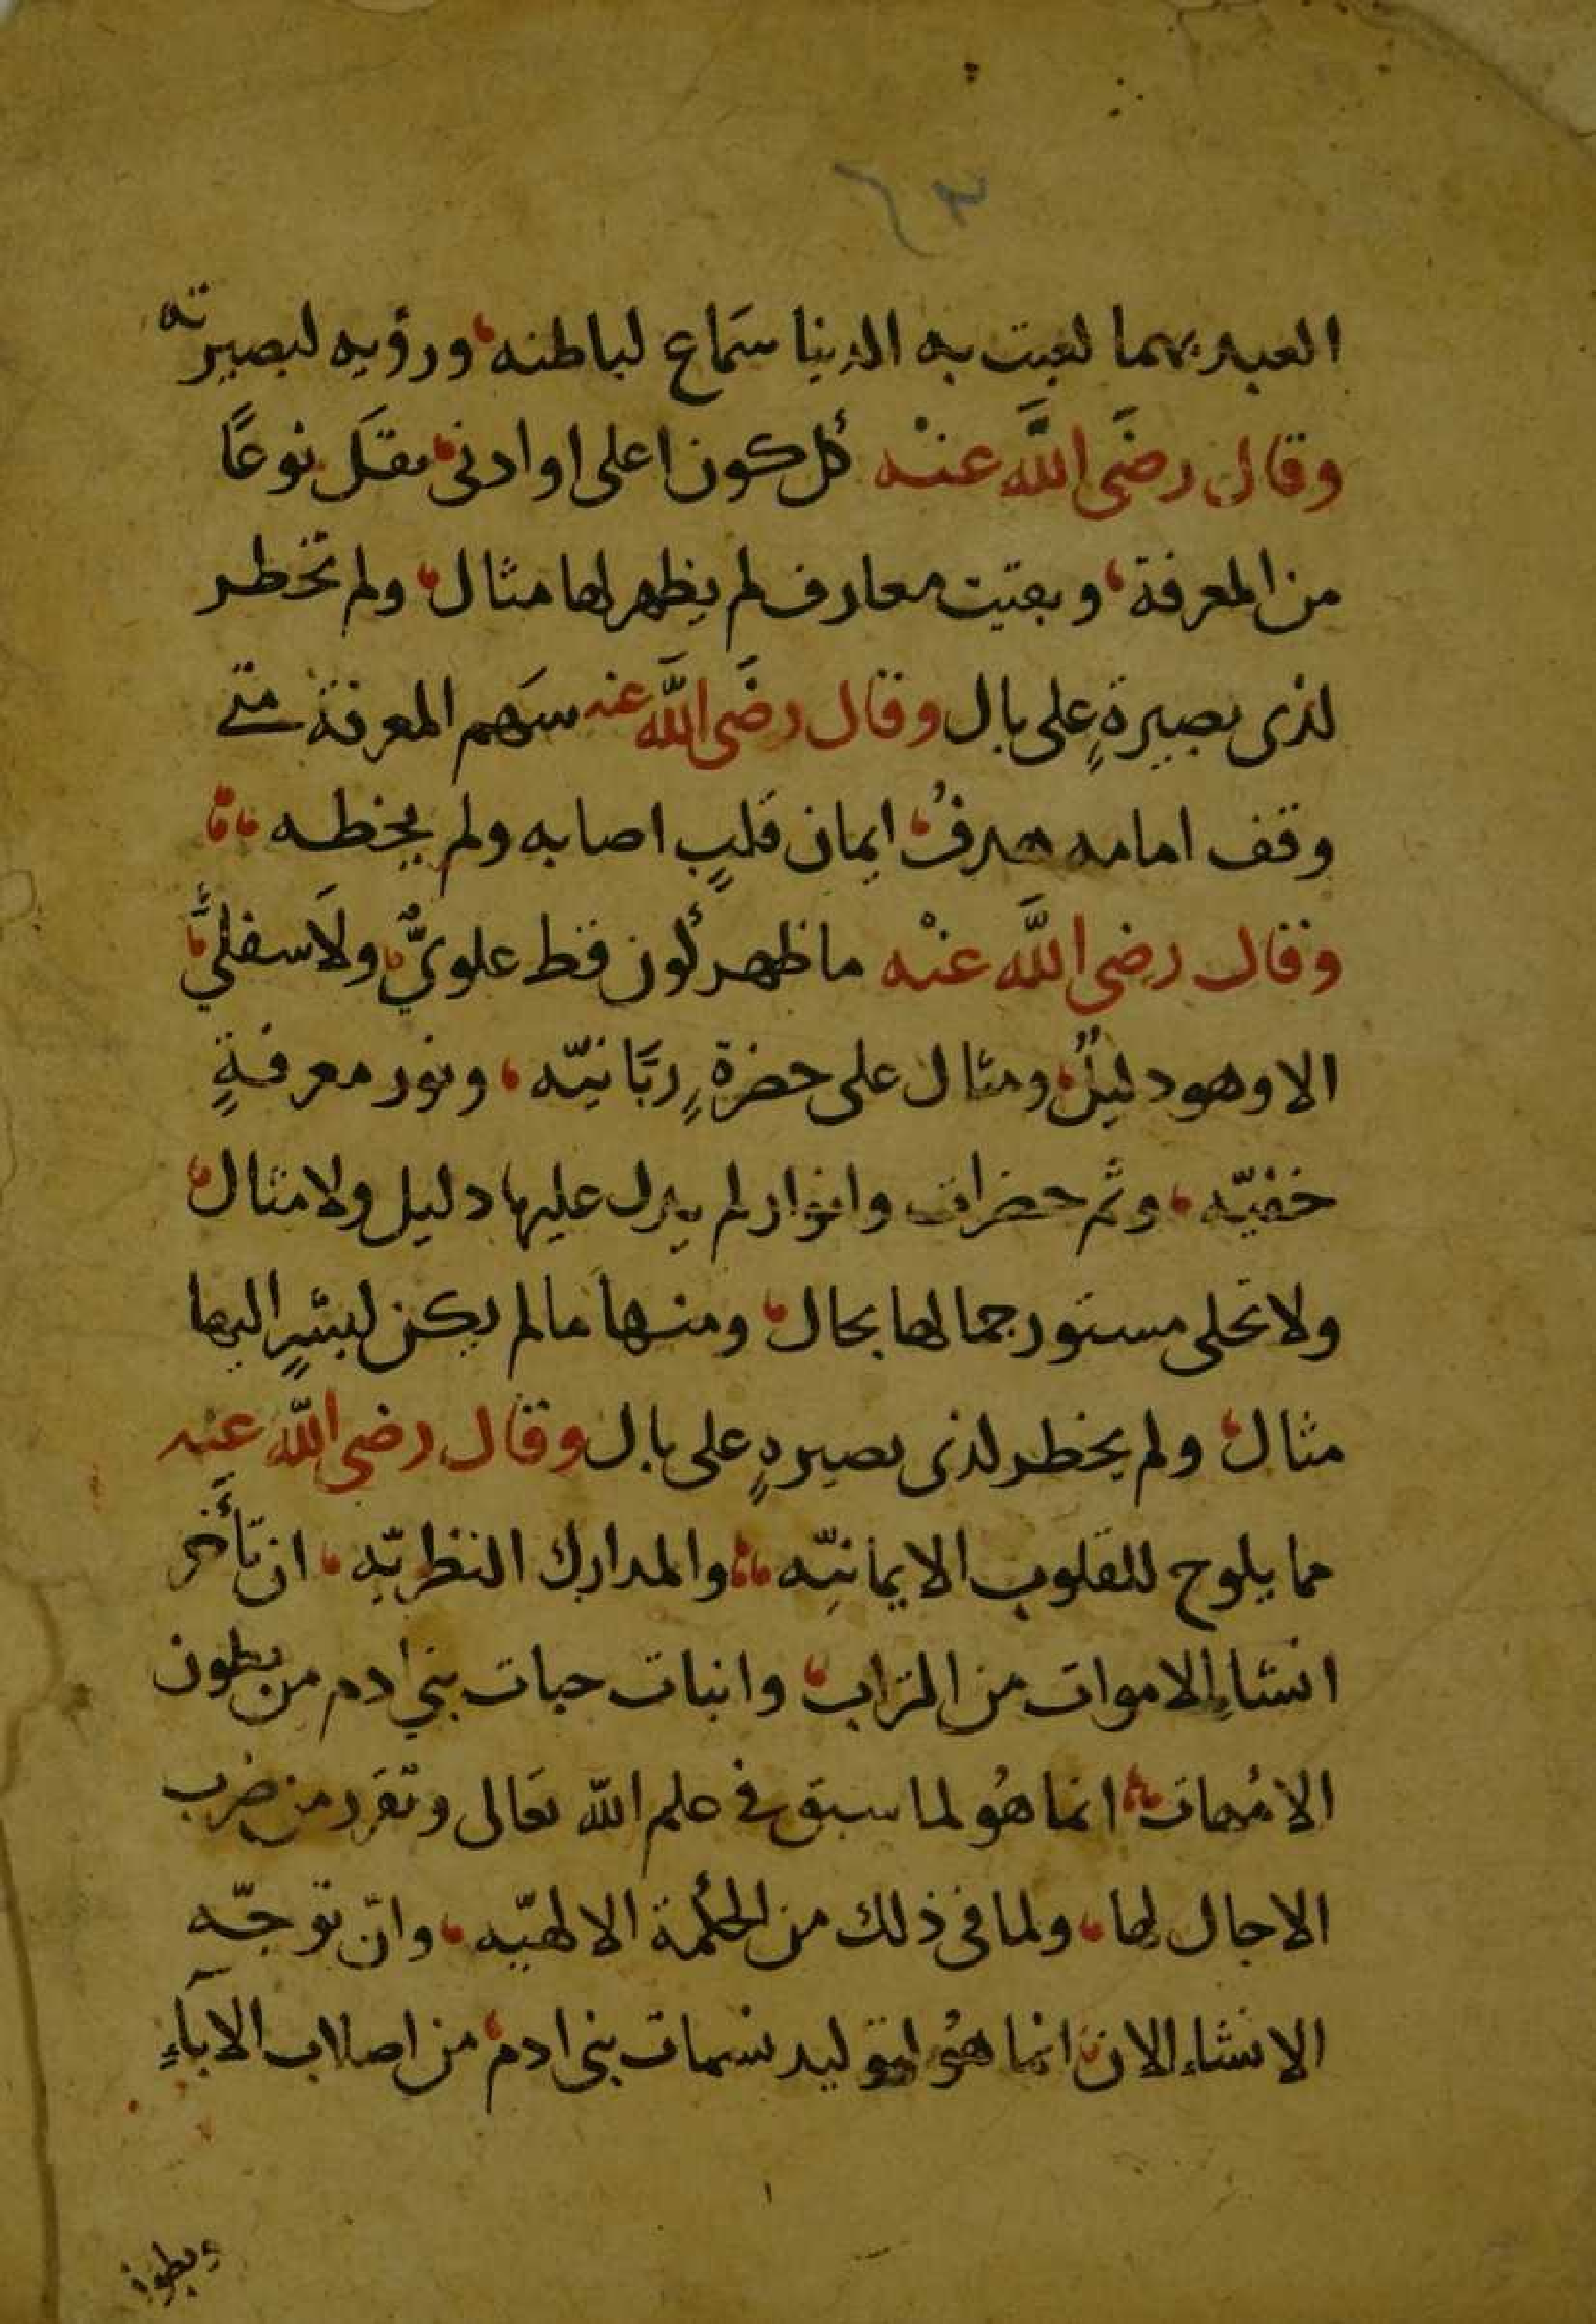 ٢٣
العبد مهما لعبت به الدنيا سَماع لباطنه، ورؤيه لبصيرته
وقال رضَى اللَّه عنْه كل كون اعلى او ادنى، مقَل نوعًا
من المعرفة، وبقيت معارف لم يظهر لها مثال، ولم تخطر
لذى بصيرةٍ على بال وقال رضَى اللَّه عنه سَهم المعرفة متى
وقف امامه هدفُ، ايمان قلبٍ اصابه ولم يخطه
وقال رضى اللَّه عنْه ما ظهر كون قط علويٌّ، ولَا سفليٌّ،
الا وهو دليلٌ، ومثال على حضرةٍ ربَّانيّه، ونور معرفةٍ
خفيّه، وثم حضرات وانوار لم يدل عليها دليل ولا مثال،
ولا تحلى مستور جمالها بحال، ومنها ما لم يكن لبشرٍ اليها
مثال، ولم يخطر لذى بصيرهٍ على بال وقال رضى اللّه عنه
مما يلوح للقلوب الايمانيّه، والمدارك النظريّه، ان تأَخر
انشاءِ الاموات من التراب، وانبات حبات بني ادم من بطون
الامُهات، انما هُو لما سبق في علم اللّه تعَالى وتقَرر من ضرب
الاجال لها، ولما فى ذلك من الحكمة الالهيّه، وانّ توجّه
الانشاء الان، انما هُو لتوليد نسمات بنى ادم، من اصلاب الآباءِ
وبطون